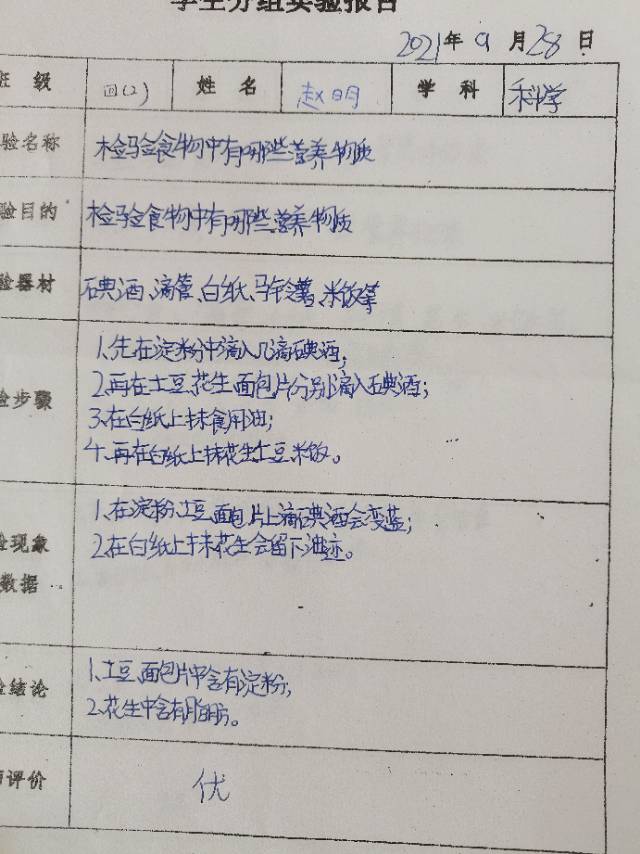 学生分组实验报告
2021年9月28日
班 级 四(2) 姓 名 赵明 学 科 科学
验名称 检验食物中有哪些营养物质
验目的 检验食物中有哪些营养物质
验器材 碘酒、滴管、白纸、马铃薯、米饭等
验步骤
1、先在淀粉中滴入几滴碘酒;
2、再在土豆、花生、面包片分别滴入碘酒;
3、在白纸上抹食用油;
4、再在白纸上抹花生、土豆、米饭。
验现象
数据
1、在淀粉、土豆、面包片上滴碘酒会变蓝;
2、在白纸上抹花生会留下油迹。
验结论
1、土豆、面包片中含有淀粉;
2、花生中含有脂肪。
师评价 优